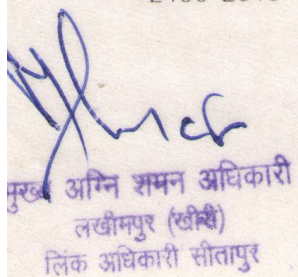 मुख्य अग्नि शमन अधिकारी
लखीमपुर (खीरी)
लिंक अधिकारी सीतापुर